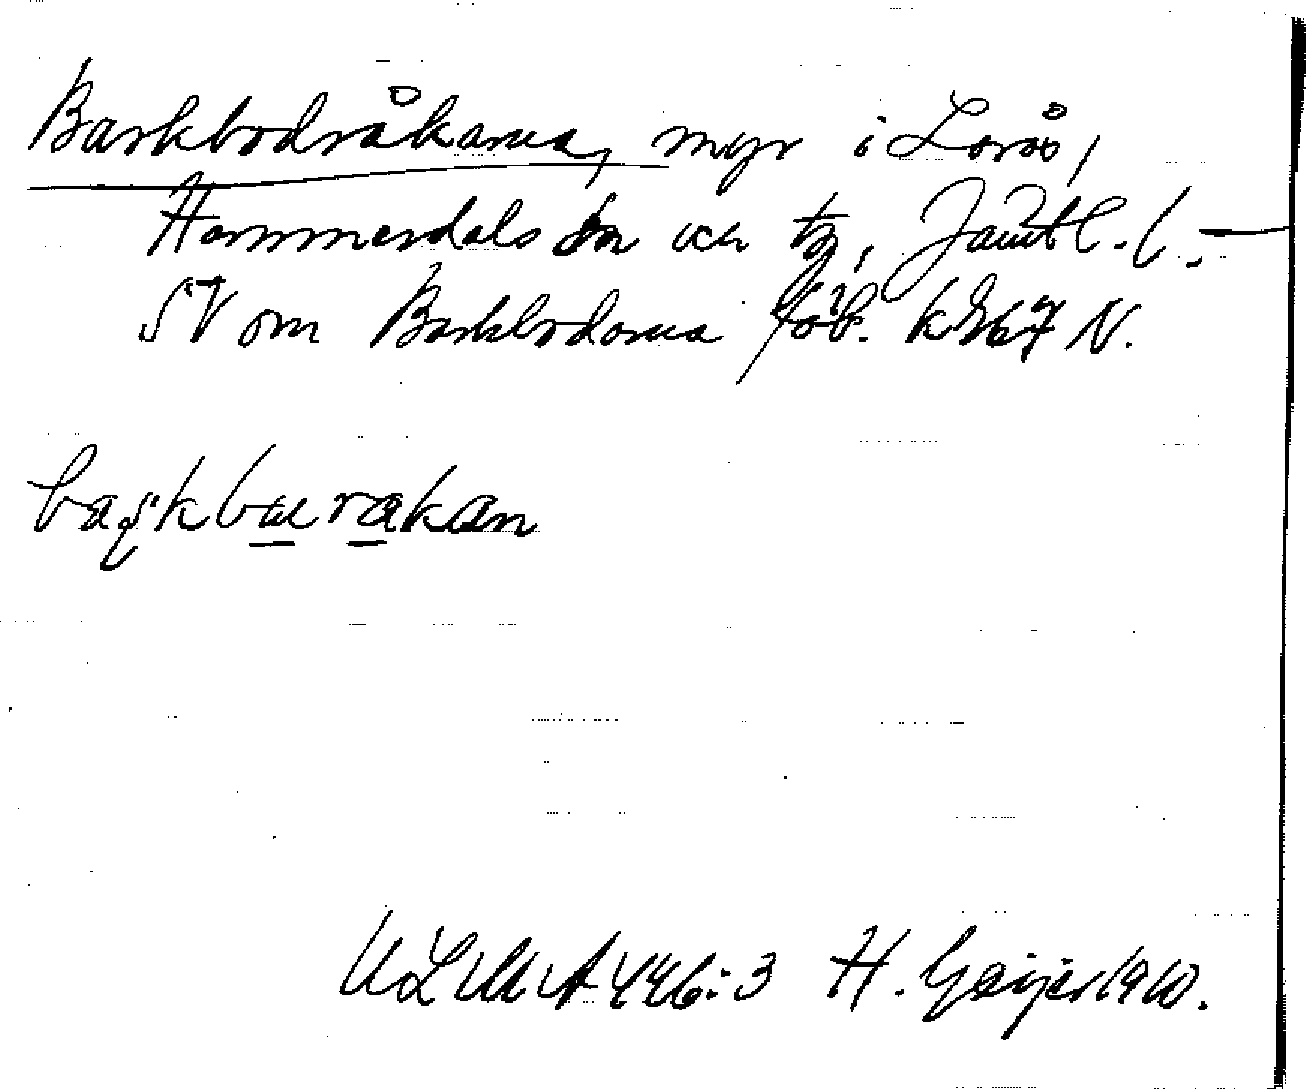 Barkbodråkarna, myr i Lorås,
Hammerdals sn och tg, Jämtl. l. —
SV om Barkbodarna kbl. 67 N.
baʂkbuɯrakan
ULMA 446:3 H. Geijer 1910.